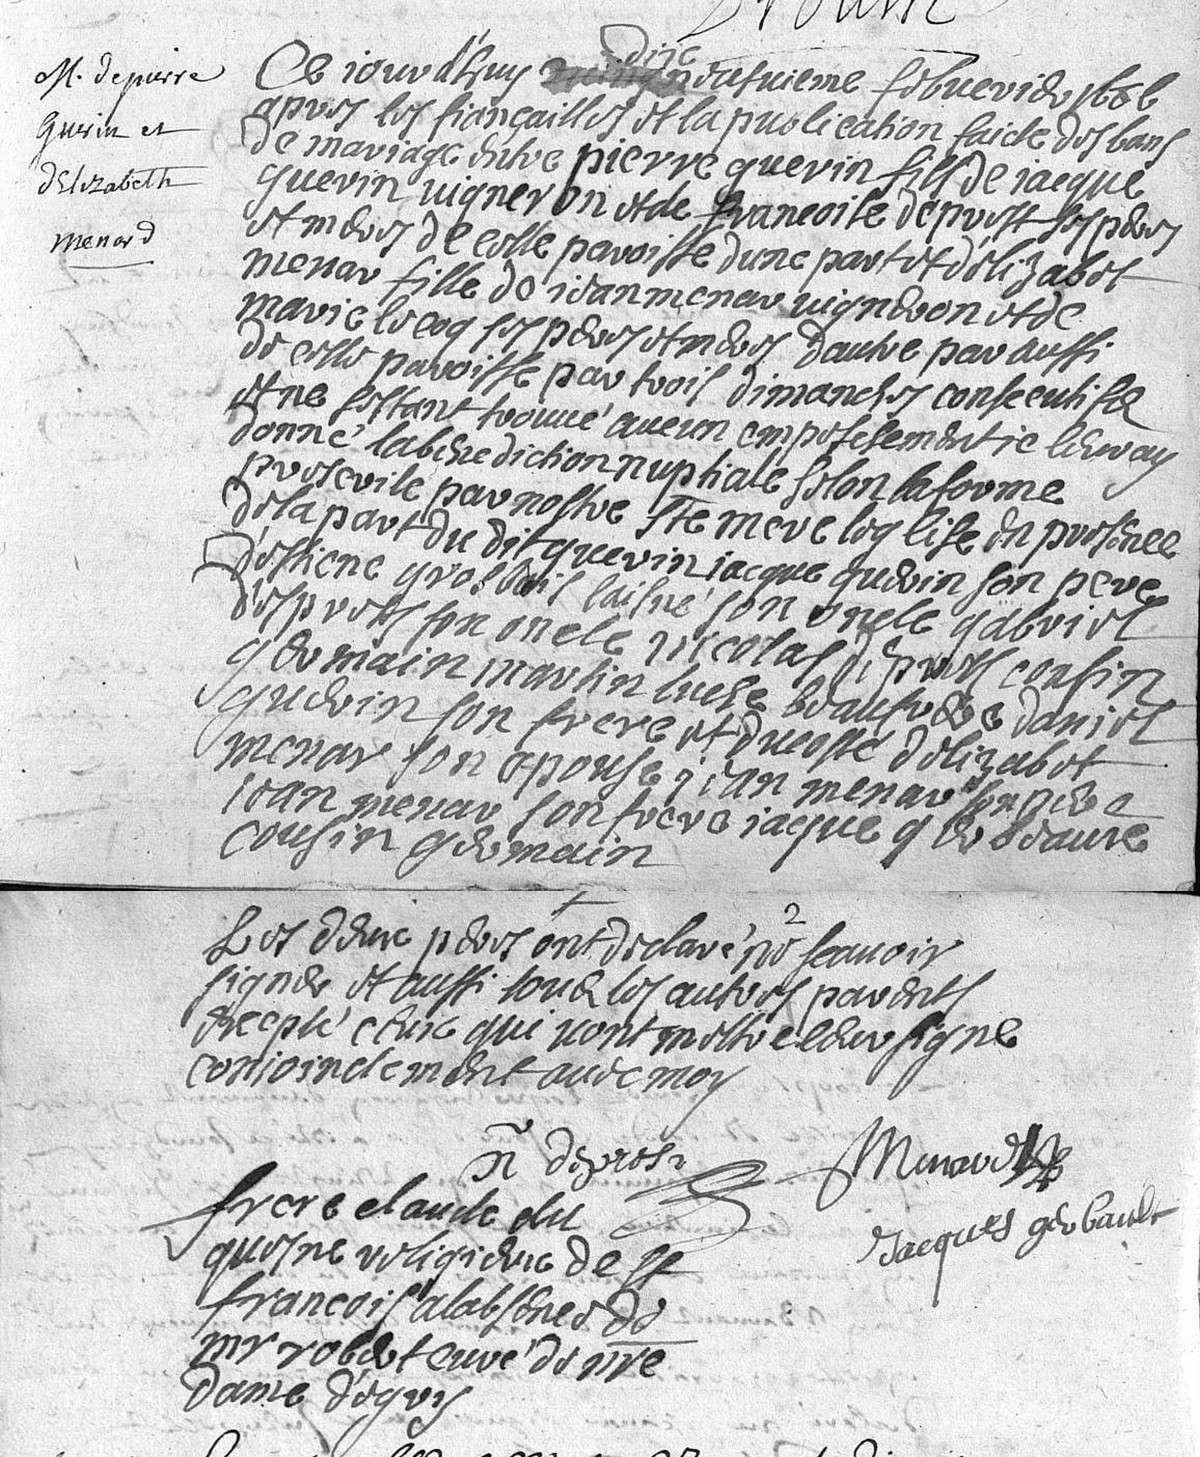 M. de pierre
Guerin et
d'Elizabeth
menard
Ce iourd'huy dixe
neufuieme febuerier
apres les fiançailles et la publication faicte des bans
de mariage entre pierre guerin fils de iacque
guerin uigneron et de francoise deprost ses peres
et meres de cette paroisse dune part et d'elizabet
menar fille de iean menar uigneron et de
marie lecoq ses peres et meres dautre par aussi
de cette paroisse par trois dimanches consecutifs
et ne sestant trouué aucun empeschement ie leur ay
donné la benediction nuptiale selon la forme
prescrite par nostre ste mere leglise en presence
de la part du dit guerin iacque guerin son pere
estiene grosbois laisné son oncle gabriel
desprots son oncle nicolas deprots cousin
germain martin beaufrere daniel
guerin son frere et du costé d'elizabet
menar son epouse iean menar son pere
iean menar son frere iacque
cousin germain
Les deux peres ont declaré ne scauoir
signer et aussi tous les autres parents
excepté ceux qui uont mettre leur signe
conioinctement auec moy
N deprost
Menard
Jacques gerbault
frere claude du
quesne religieux de st
francois a labsence de
mr robert curé de nre
dame